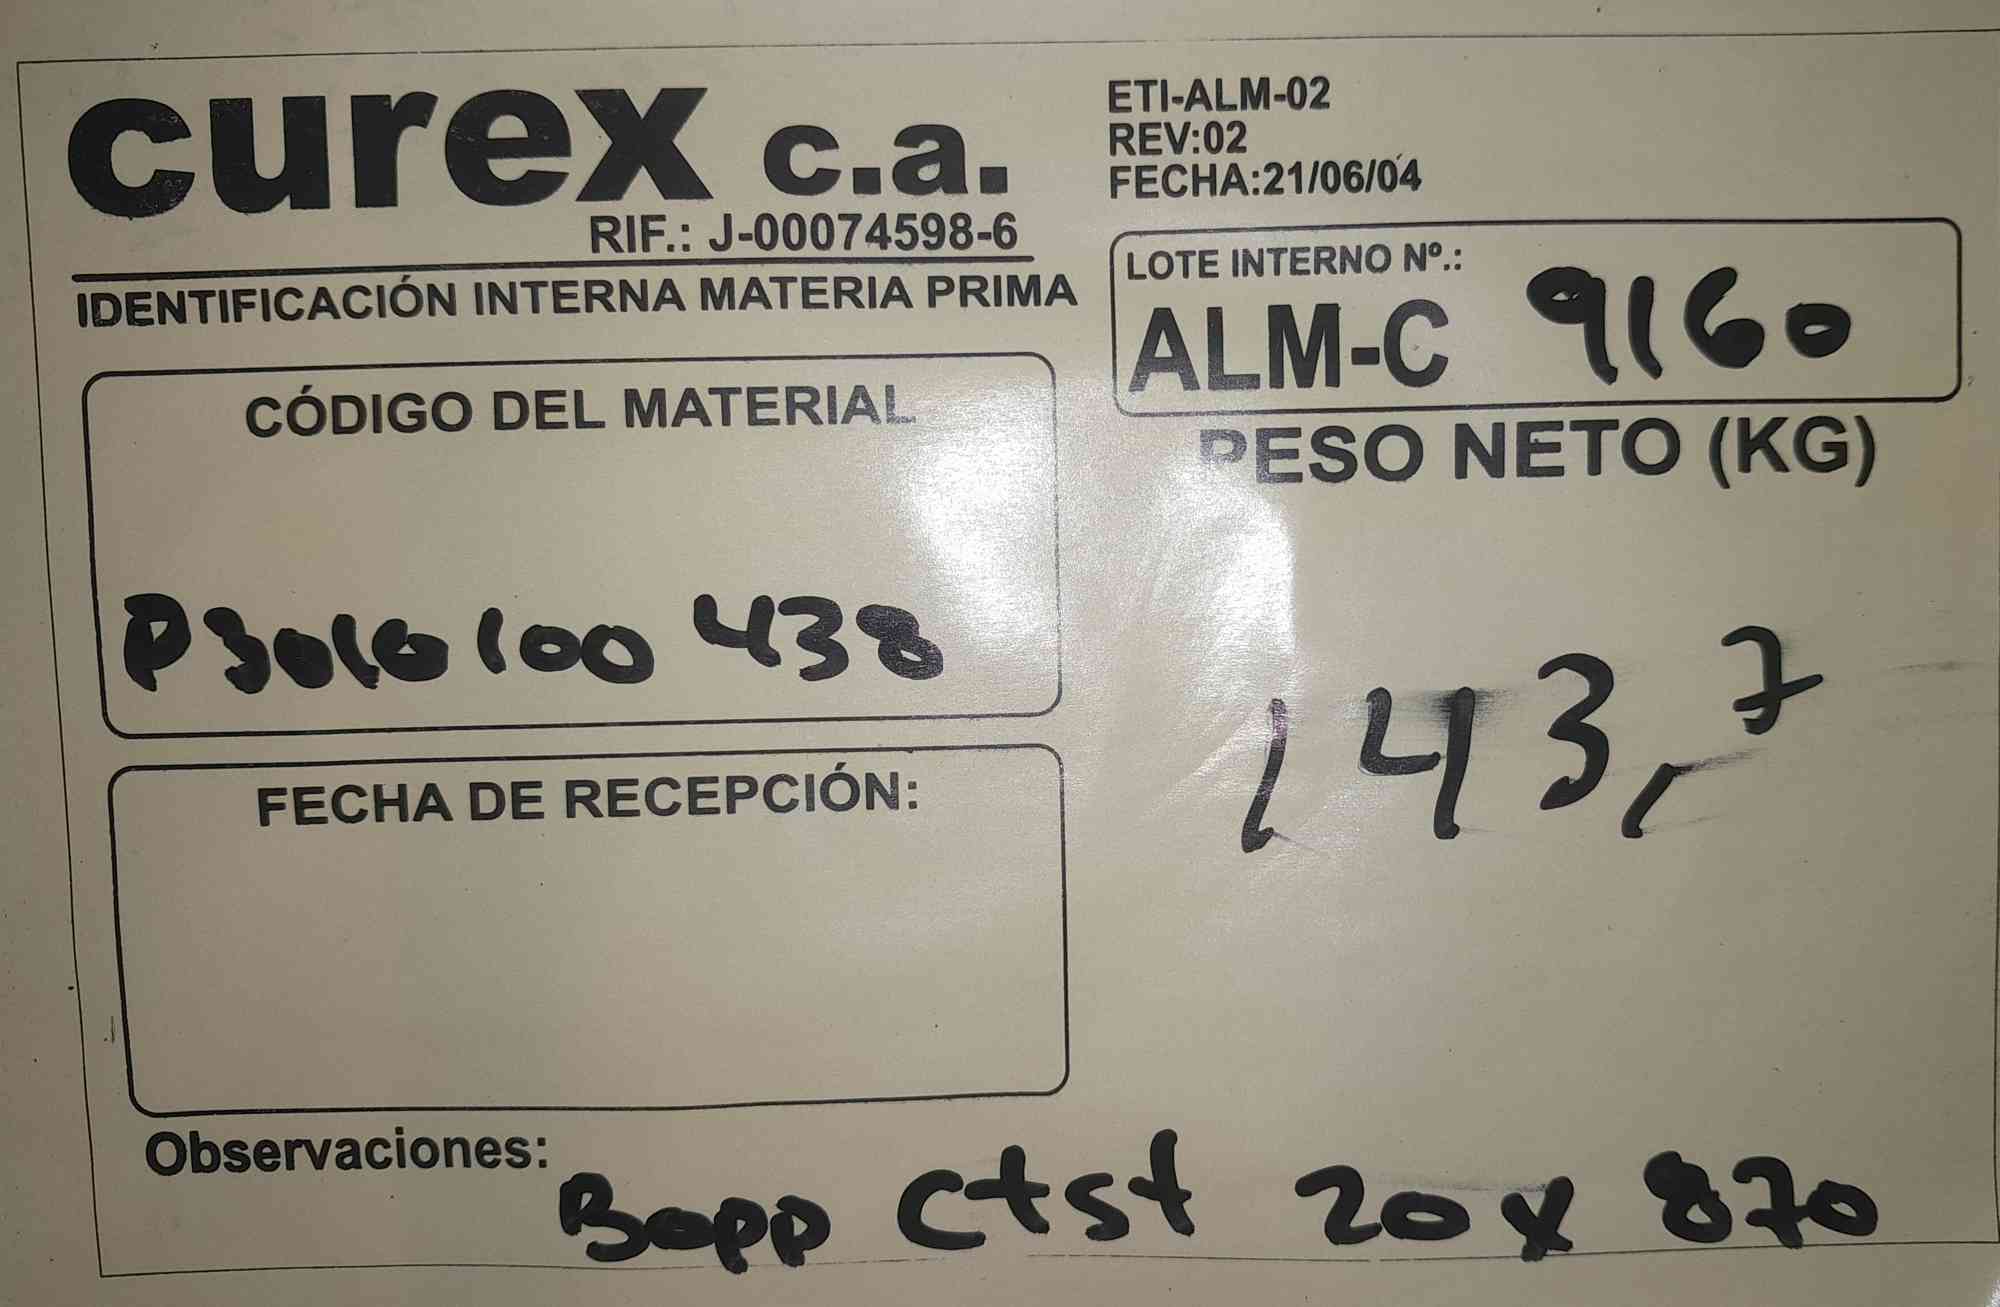 curex c.a.
RIF.: J-00074598-6
IDENTIFICACIÓN INTERNA MATERIA PRIMA
ETI-ALM-02
REV:02
FECHA:21/06/04
LOTE INTERNO Nº.:
ALM-C 9160
CÓDIGO DEL MATERIAL
P3010100438
PESO NETO (KG)
143,7
FECHA DE RECEPCIÓN:
Observaciones:
Bopp Ctst 20 x 870